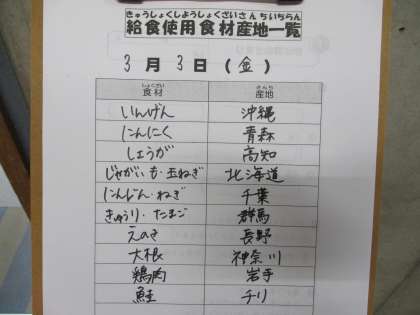 きゅうしょくしようしょくざいさんちいちらん
給食使用食材産地一覧
3月3日(金)
しょくざい さんち
食材 産地
いんげん 沖縄
にんにく 青森
しょうが 高知
じゃがいも・玉ねぎ 北海道
にんじん・ねぎ 千葉
きゅうり・たまご 群馬
えのき 長野
大根 神奈川
鶏肉 岩手
鮭 チリ